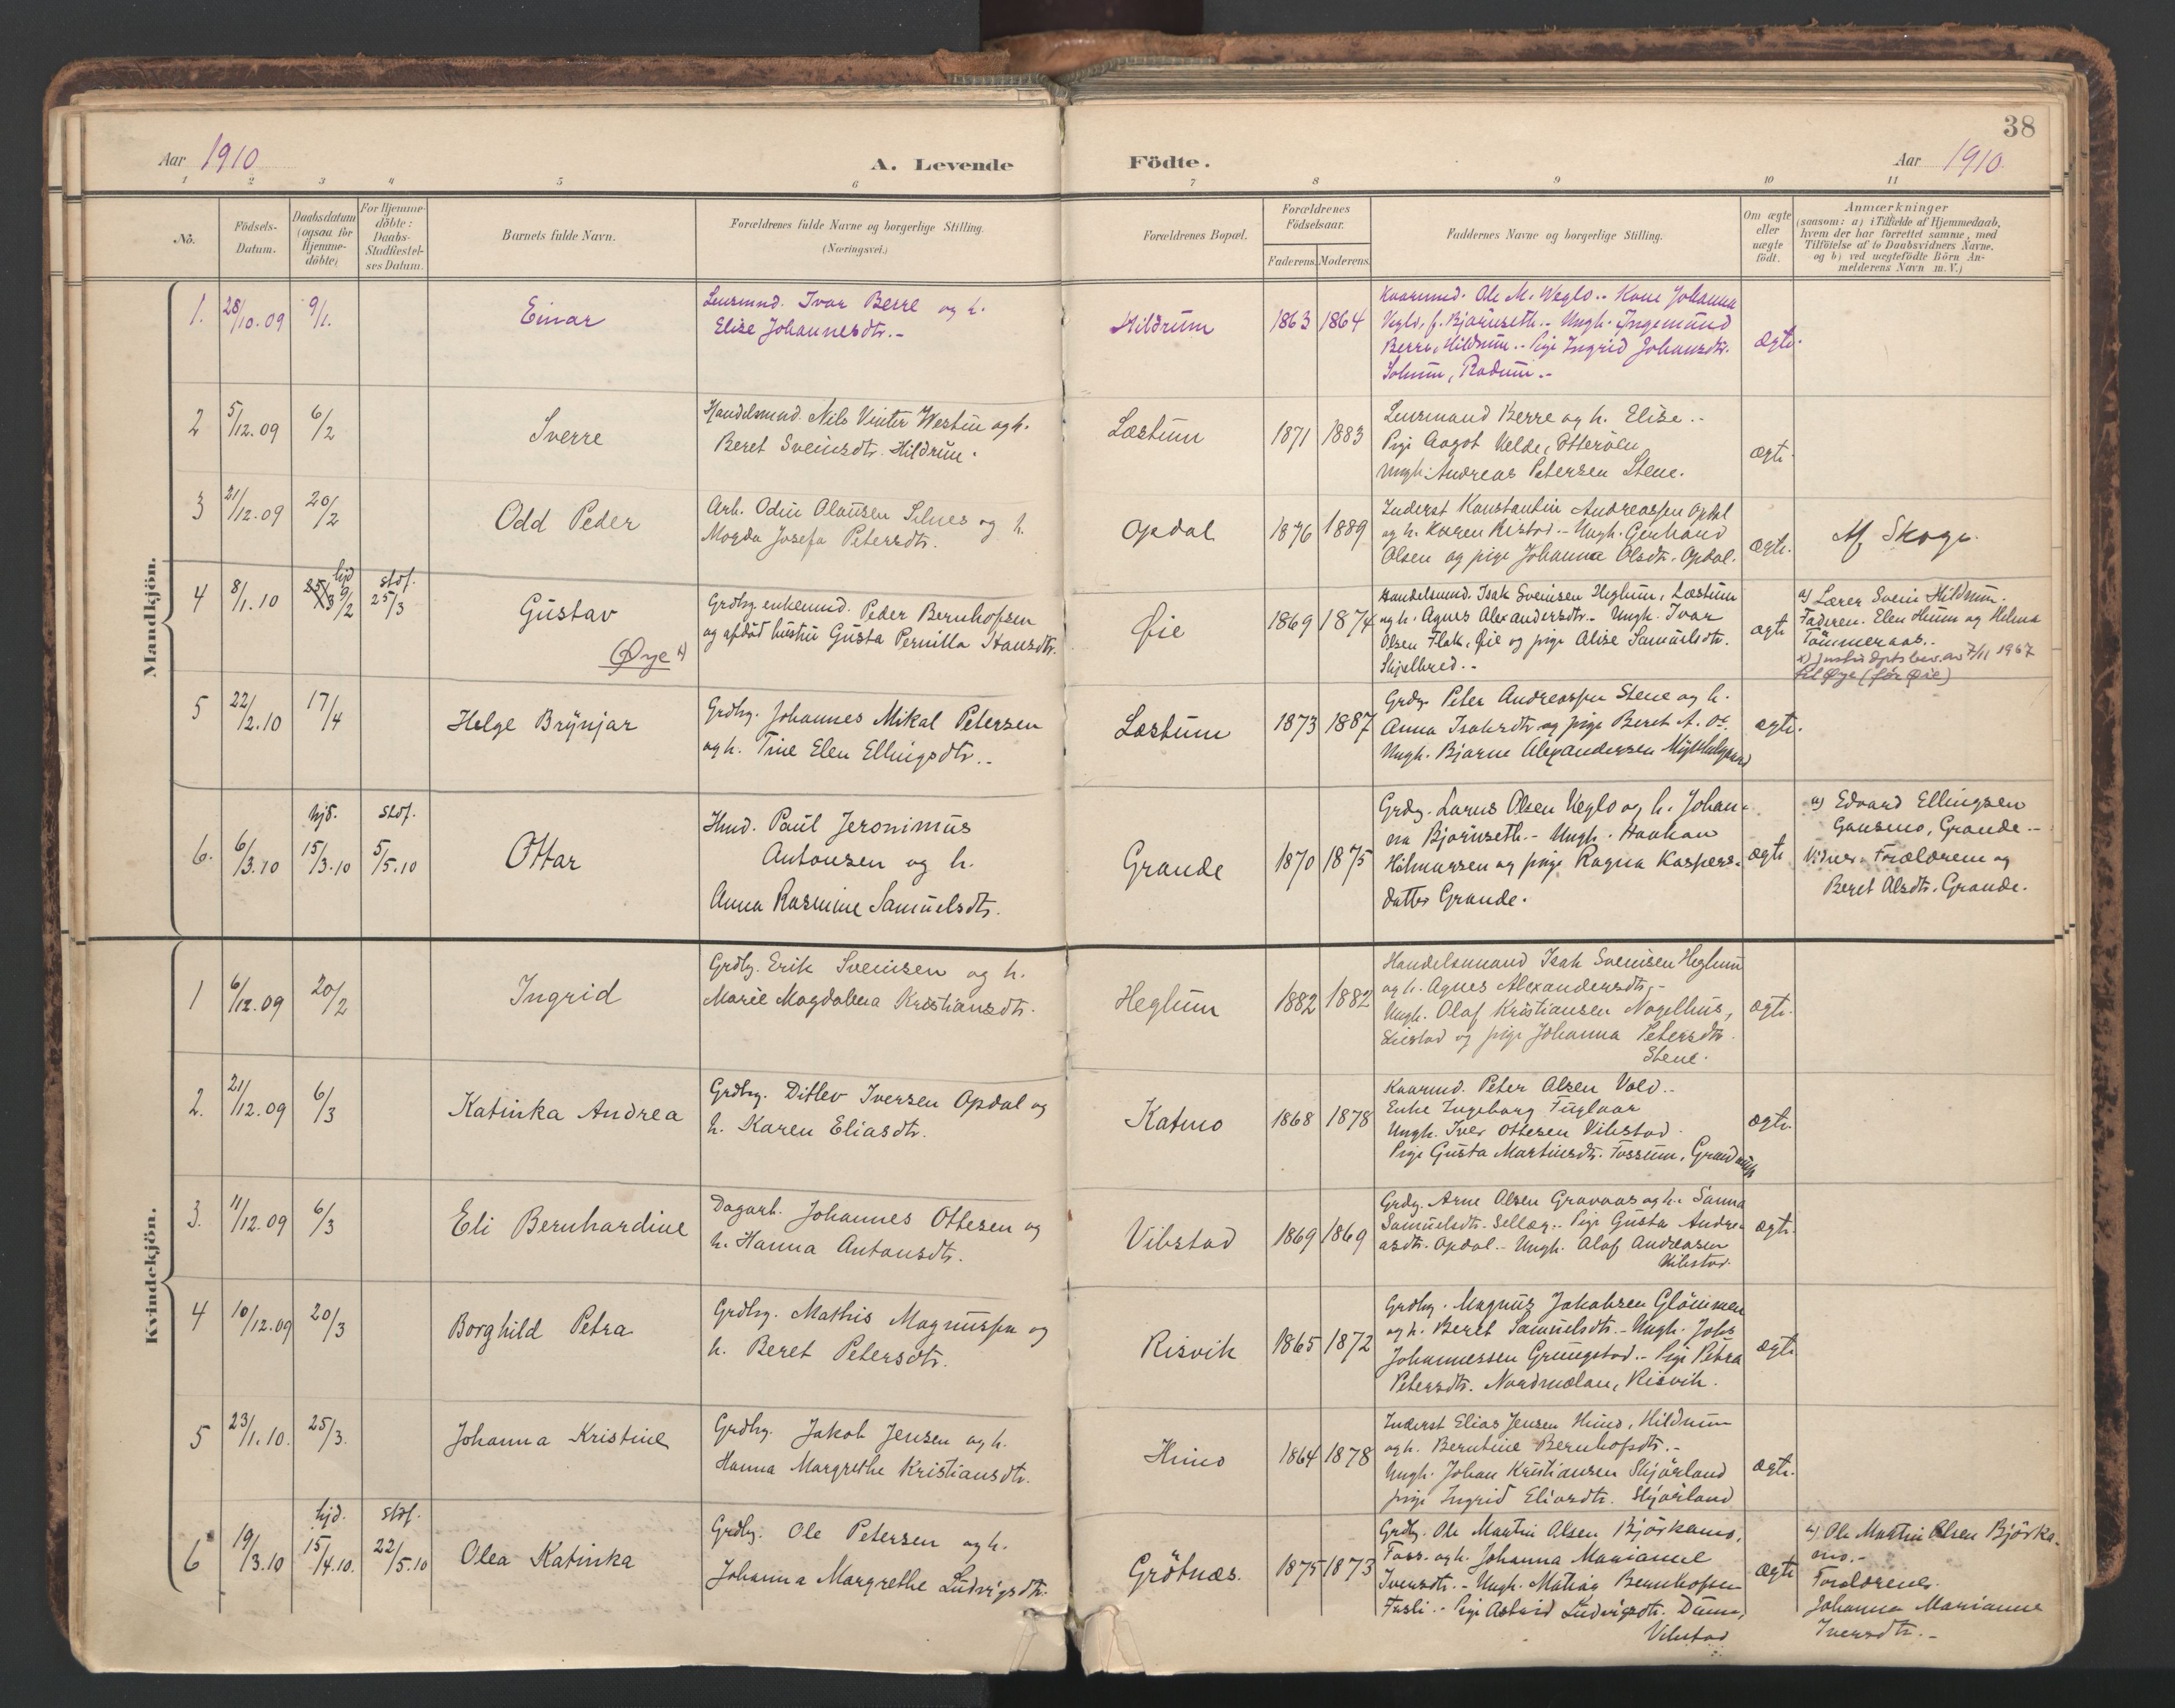 38
Aar 1910
A. Levende
Födte.
Aar 1910
1 2 3 4 5 6 7 8 9 10 11
No.
Födsels-
Datum.
Daabsdatum
(ogsaa for
Hjemme-
döbte)
For Hjemme-
döbte:
Daabs-
Stadfæstel-
ses Datum.
Barnets fulde Navn.
Forældrenes fulde Navne og borgerlige Stilling.
(Næringsvei.)
Forældrenes Bopæl.
Forældrenes
Födselsaar.
Faderens. Moderens.
Faddernes Navne og borgerlige Stilling.
Om ægte
eller
uægte
födt.
Anmærkninger
(saasom: a) i Tilfælde af Hjemmedaab,
hvem der har forrettet samme, med
Tilföielse af to Daabsvidners Navne,
og b) ved uægtefödte Börn An-
melderens Navn m. V.)
Mandkjön.
1. 28/10.09 9/1.
Einar
Lensmnd. Ivar Berre og h.
Elise Johannesdtr.-
Hildrum
1863 1864
Kaarmd. Ole M. Weglo.- Kone Johanna
Veglo, f. Bjørnseth.- Ungk. Ingemund
Berre, Hildrum.- Pige Ingrid Johansdtr.
Solum, Rodum.-
ægte.
2 5/12.09 6/2
Sverre
Handelsmnd. Nils Vinter Westin og h.
Beret Sveinsdtr. Hildrum.
Læstum
1871 1883
Lensmand Berre og h. Elise.-
Pige Aagot Velde, Otterøen
Ungk. Andreas Petersen Stene.
ægte.
3 21/12.09 20/2
Odd Peder
Arb. Odin Olausen Selnes og h.
Magda Josefa Petersdtr.
Opdal
1876 1889
Inderst Konstantin Andreassen Opdal
og h. Karen Ristad.- Ungk. Gerhard
Olsen og pige Johanna Olsdtr. Opdal.
ægte.
Af Skoge.
4 8/1.10
hjd 9/2
stdf. 25/3
Gustav
Øye x)
Grdbg. enkemnd. Peder Bernhofsen
og afdød hustru Gusta Pernilla Hansdtr.
Øie
1869 1874
Handelsmnd. Isak Sveinsen Heglum, Læstum
og h. Agnes Alexandersdtr.- Ungk. Ivar
Olsen Flak, Øie og pige Alise Samuelsdtr.
Skjelbred.-
ægte
a) Lærer Svein Hildrum.
Faderen. Elen Huum og Helena
Tømmeraas.-
x) Justisdpts bev. av 7/11 1967
til Øye (før Øie)
5 22/2.10 17/4
Helge Brynjar
Grdbg. Johannes Mikal Petersen
og h. Trine Elen Ellingsdtr.-
Læstum
1873 1887
Grdbg. Peter Andreassen Stene og h.
Anna Isaksdtr og pige Beret A. og
Ungk. Bjarne Alexandersen
ægte.
6. 6/3.10
hjd. 15/3.10
stdf. 5/5.10
Ottar
Hmd. Paul Jeronimus
Antonsen og h.
Anna Rasmine Samuelsdtr.
Grande
1870 1875
Grdbg. Larus Olsen Veglo og h. Johan-
na Bjørnseth.- Ungk. Haakon
Hilmarsen og pige Ragna Kaspers-
datter Grande.
ægte
a) Edvard Ellingsen
Gansmo, Grande.-
Vidner: Forældrene og
Beret Olsdtr. Grande.
Kvindekjön.
1 6/12.09 20/2
Ingrid
Grdbg. Erik Sveinsen og h.
Marie Magdalena Kristiansdtr.
Heglum
1882 1882
Handelsmand Isak Sveinsen Heglum
og h. Agnes Alexandersdtr.-
Ungk. Olaf Kristiansen Nagelhus,
og pige Johanna Petersdtr.
Stene.
ægte.
2. 21/12.09 6/3
Katinka Andrea
Grdbg. Ditlev Iversen Opdal og
h. Karen Eliasdtr.
Katmo
1868 1878
Kaarmd. Peter Olsen Vold.-
Enke Ingeborg Fuglaar
Ungk. Iver Ottesen Vibstad.
Pige Gusta Martinsdtr. Fossum,
ægte.
3. 11/12.09 6/3
Eli Bernhardine
Dagarb. Johannes Ottesen og
h. Hanna Antonsdtr.
Vibstad
1869 1869
Grdbg. Arne Olsen Gravaas og h. Sanna
Samuelsdtr. Sellæg.- Pige Gusta Andre-
asdtr. Opdal.- Ungk. Olaf Andreasen
Vibstad.
ægte.
4 10/12.09 20/3
Borghild Petra
Grdbg. Mathis Magnussen og
h. Beret Petersdtr.
Risvik
1865 1872
Grdbg. Magnus Jakobsen Glömmen
og h. Beret Samuelsdtr.- Ungk. Johs
Johannessen Grungstad.- Pige Petra
Petersdtr. Nordmelan, Risvik.
ægte
5 23/1.10. 25/3.
Johanna Kristine
Grdbg. Jakob Jensen og h.
Hanna Margrethe Kristiansdtr.
Himo
1864 1878
Inderst Elias Jensen Himo, Hildrum
og h. Berntine Bernhofsdtr.-
Ungk. Johan Kristiansen Skjærland
pige Ingrid Eliasdtr. Skjærland
ægte.
6 19/3.10
hjd. 15/4.10.
stdf. 22/5.10
Olea Katinka
Grdbg. Ole Petersen og h.
Johanna Margrethe Ludvigsdtr.
Grötnæs.
1875 1873
Grdbg. Ole Martin Olsen Björkamo,
Foss. og h. Johanna Marianne
Iversdtr.- Ungk. Mathias Bernhofsen
Fosli.- Pige Astrid Ludvigsdtr. Duun,
Vibstad
ægte
a) Ole Martin Olsen Björka-
mo.-
Forældrene.
Johanna Marianne
Iversdtr.-